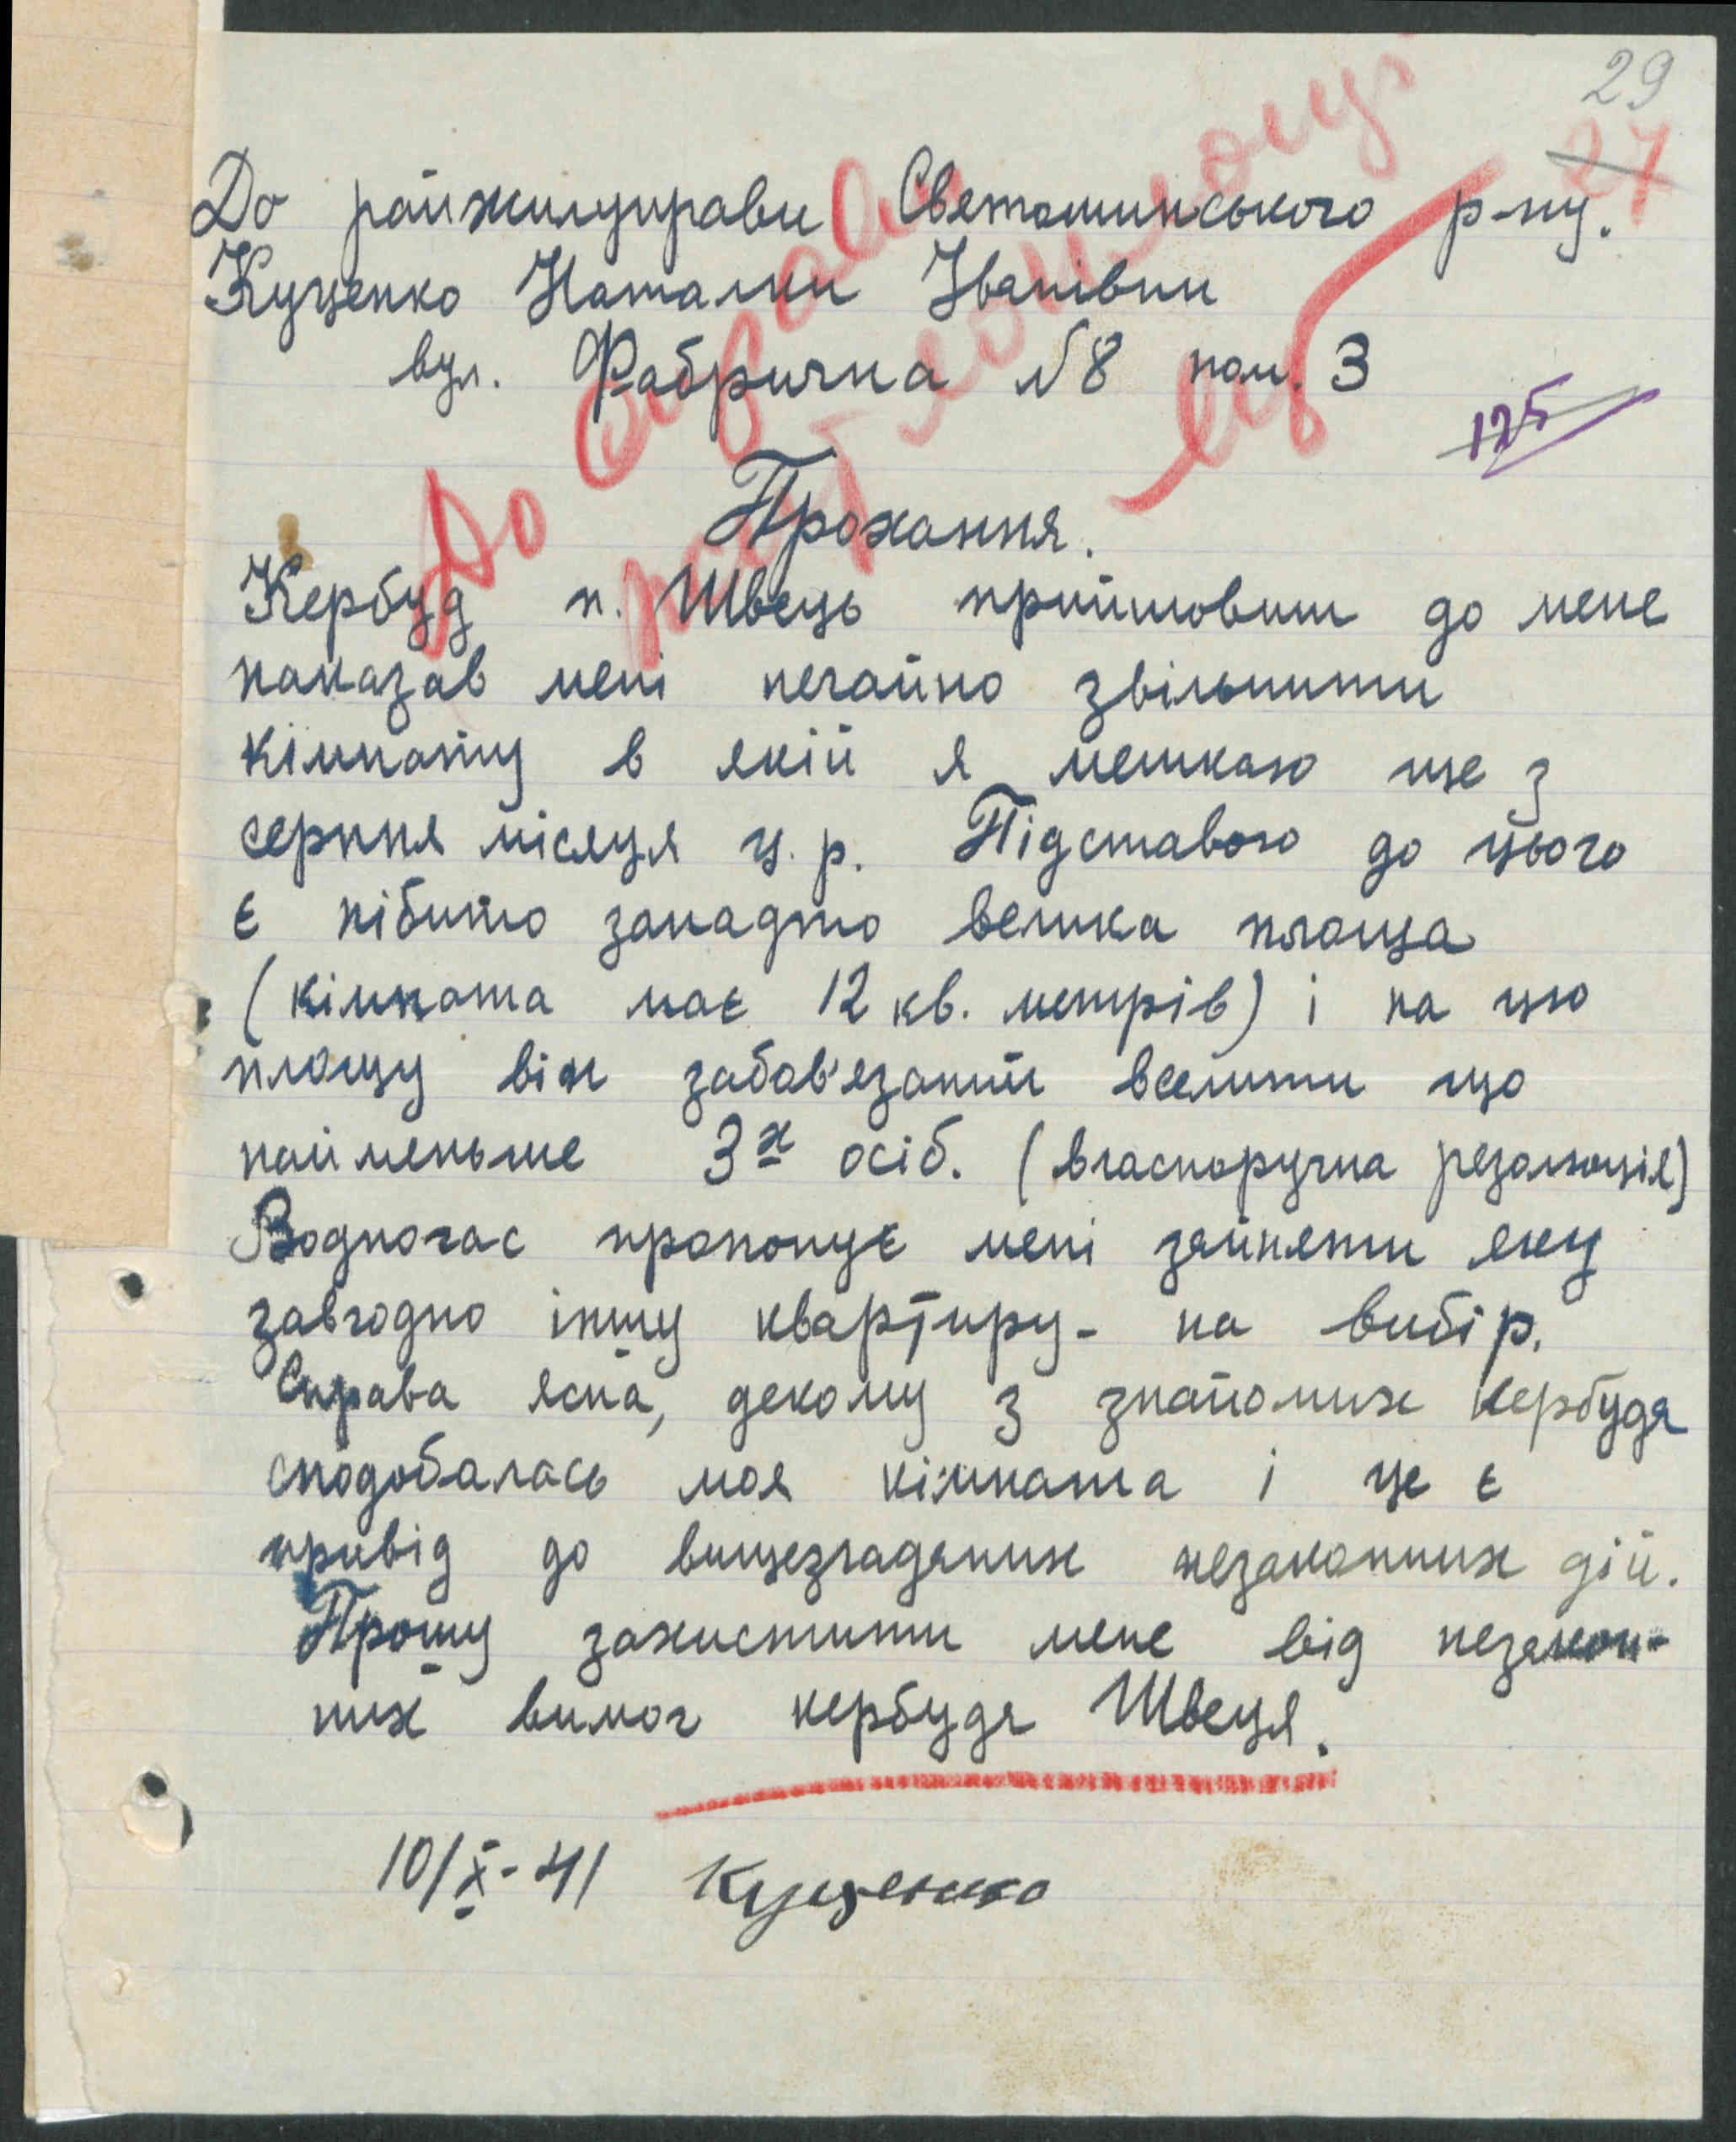 29
27
До райжилуправи Святошинського р-ну.
Куценко Наталки Іванівни
вул. Фабрична №8 пом. 3
125
До справи
Прохання.
Кербуд п. Швець прийшовши до мене
наказав мені негайно звільнити
кімнату в якій я мешкаю ще з
серпня місяця ц. р. Підставою до цього
є нібито занадто велика площа
(кімната має 12 кв. метрів) і на цю
площу він забов'язаний вселити що
найменьше 3х осіб. (власноручна резолюція)
Водночас пропонує мені зайняти яку
завгодно іншу квартиру - на вибір.
Справа ясна, декому з знайомих кербуда
сподобалась моя кімната і це є
привід до вищезгаданих незаконних дій.
Прошу захистити мене від незакон-
них вимог кербуда Швеця.
10/X-41 Куценко